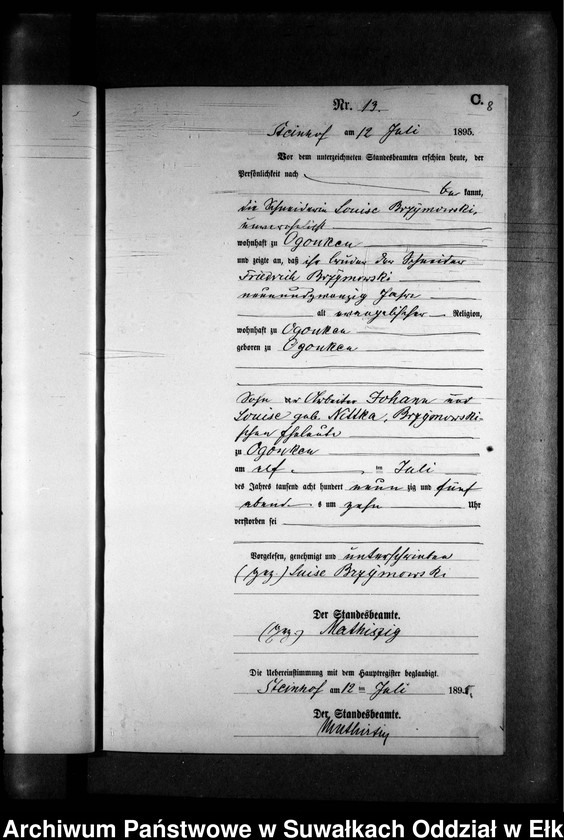 C.
8
Nr. 13.
Steinhof am 12 Juli 1895.
Vor dem unterzeichneten Standesbeamten erschien heute, der
Persönlichkeit nach
be kannt,
die Schneiderin Louise Brzÿmowski,
unverehelicht
wohnhaft zu Ogonken
und zeigte an, daß ihr Bruder der Schneider
Friedrich Brzÿmowski
neunundzwanzig Jahre
alt evangelischer Religion,
wohnhaft zu Ogonken
geboren zu Ogonken
Sohn der Arbeiter Johann und
Louise geb. Nittka, Brzÿmowski-
schen Eheleute
zu Ogonken
am elf ten Juli
des Jahres tausend acht hundert neun zig und fünf
abend s um zehn Uhr
verstorben sei
Vorgelesen, genehmigt und unterschrieben
(gez) Luise Brzÿmowski
Der Standesbeamte.
(gez) Mathiszig
Die Uebereinstimmung mit dem Hauptregister beglaubigt.
Steinhof am 12 ten Juli 1895.
Der Standesbeamte.
Mathiszig
Archiwum Państwowe w Suwałkach Oddział w Ełk